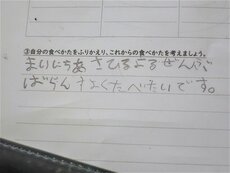 ③自分の食べかたをふりかえり、これからの食べかたを考えましょう。
まいにちあさひるよるぜんぶ
ばらんすよくたべたいです。